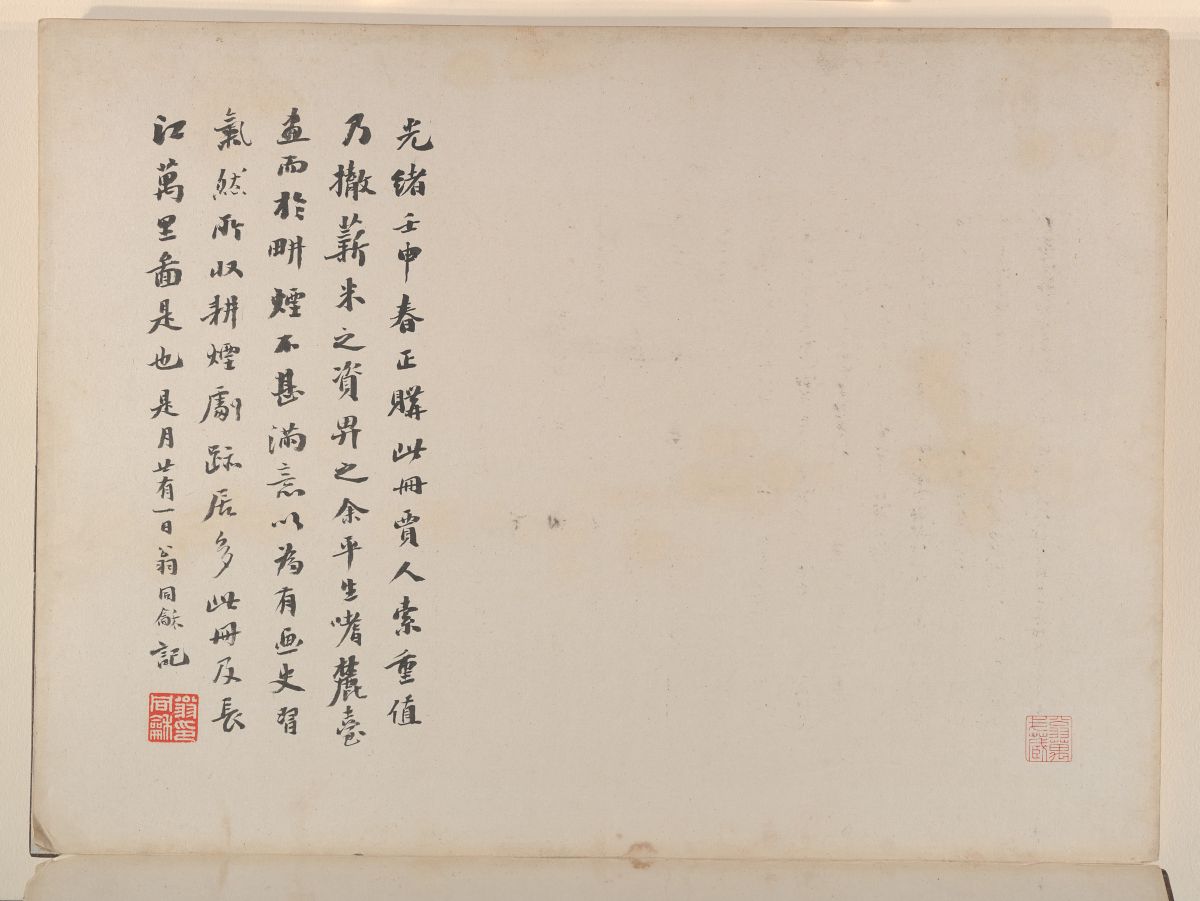 光緒壬申春正購此冊賈人索重值
乃撤薪米之資畀之余平生嗜麓臺
畫而於畊煙不甚滿意以為有畫史習
氣然所收耕煙劇跡居多此冊及長
江萬里圖是也是月廿有一日翁同龢記
翁同龢印
翁萬戈藏